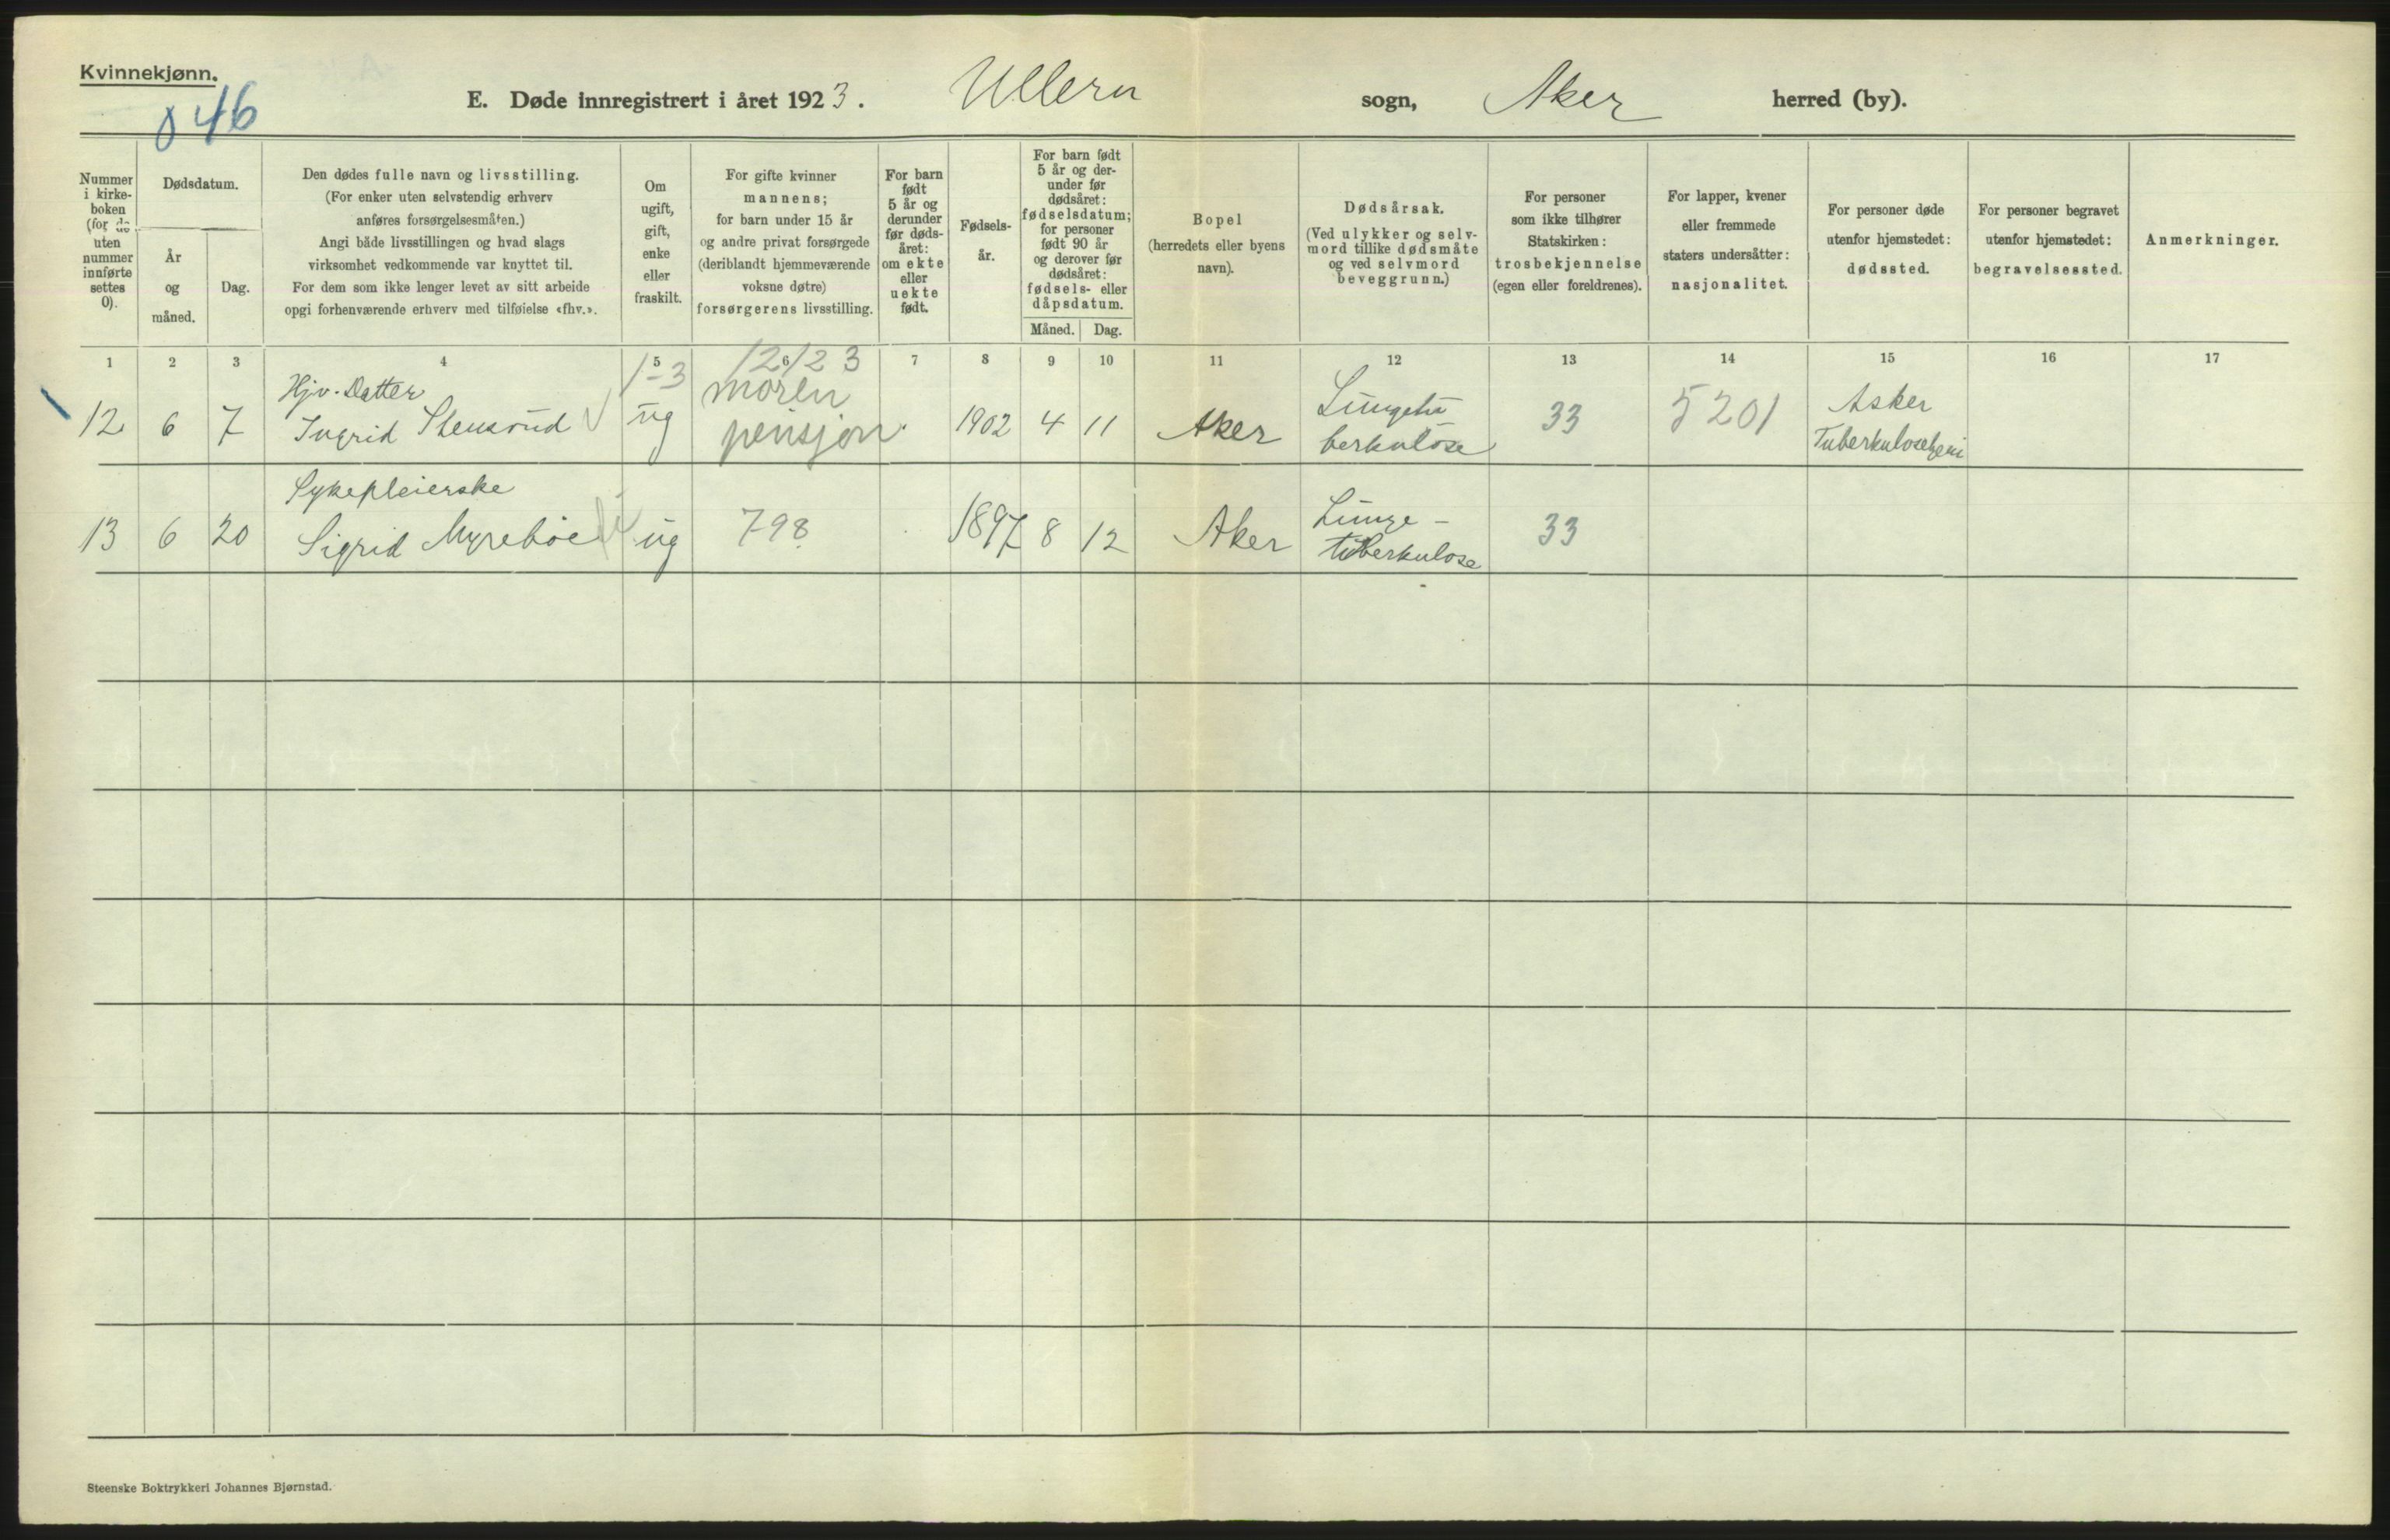 Kvinnekjønn.
046
E. Døde innregistrert i året 1923. Ullern sogn, Aker herred (by).
Nummer
i kirke-
boken
(for de
uten
nummer
innførte
settes
0).
Dødsdatum.
År
og
måned.
Dag.
Den dødes fulle navn og livsstilling.
(For enker uten selvstendig erhverv
anføres forsørgelsesmåten.)
Angi både livsstillingen og hvad slags
virksomhet vedkommende var knyttet til.
For dem som ikke lenger levet av sitt arbeide
opgi forhenværende erhverv med tilføielse «fhv.».
Om
ugift,
gift,
enke
eller
fraskilt.
For gifte kvinner
mannens;
for barn under 15 år
og andre privat forsørgede
(deriblandt hjemmeværende
voksne døtre)
forsørgerens livsstilling.
For barn
født
5 år og
derunder
før døds-
året:
om ekte
eller
uekte
født.
Fødsels-
år.
For barn født
5 år og der-
under før
dødsåret:
fødselsdatum;
for personer
født 90 år
og derover før
dødsåret:
fødsels- eller
dåpsdatum.
Måned. Dag.
Bopel
(herredets eller byens
navn).
Dødsårsak.
(Ved ulykker og selv-
mord tillike dødsmåte
og ved selvmord
beveggrunn.)
For personer
som ikke tilhører
Statskirken:
trosbekjennelse
(egen eller foreldrenes).
For lapper, kvener
eller fremmede
staters undersåtter:
nasjonalitet.
For personer døde
utenfor hjemstedet:
dødssted.
For personer begravet
utenfor hjemstedet:
begravelsessted.
Anmerkninger.
1 2 3 4 5 6 7 8 9 10 11 12 13 14 15 16 17
1-3 12/12 3
Hjv. Datter moren Lungetu Asker
12 6 7 Ingrid Stensrud ug pensjon. 1902 4 11 Aker berkulose 33 5201 Tuberkulosehjem
Sykepleierske Lunge-
13 6 20 Sigrid Myreböe ug 798 1897 8 12 Aker tuberkulose 33
Steenske Boktrykkeri Johannes Bjørnstad.